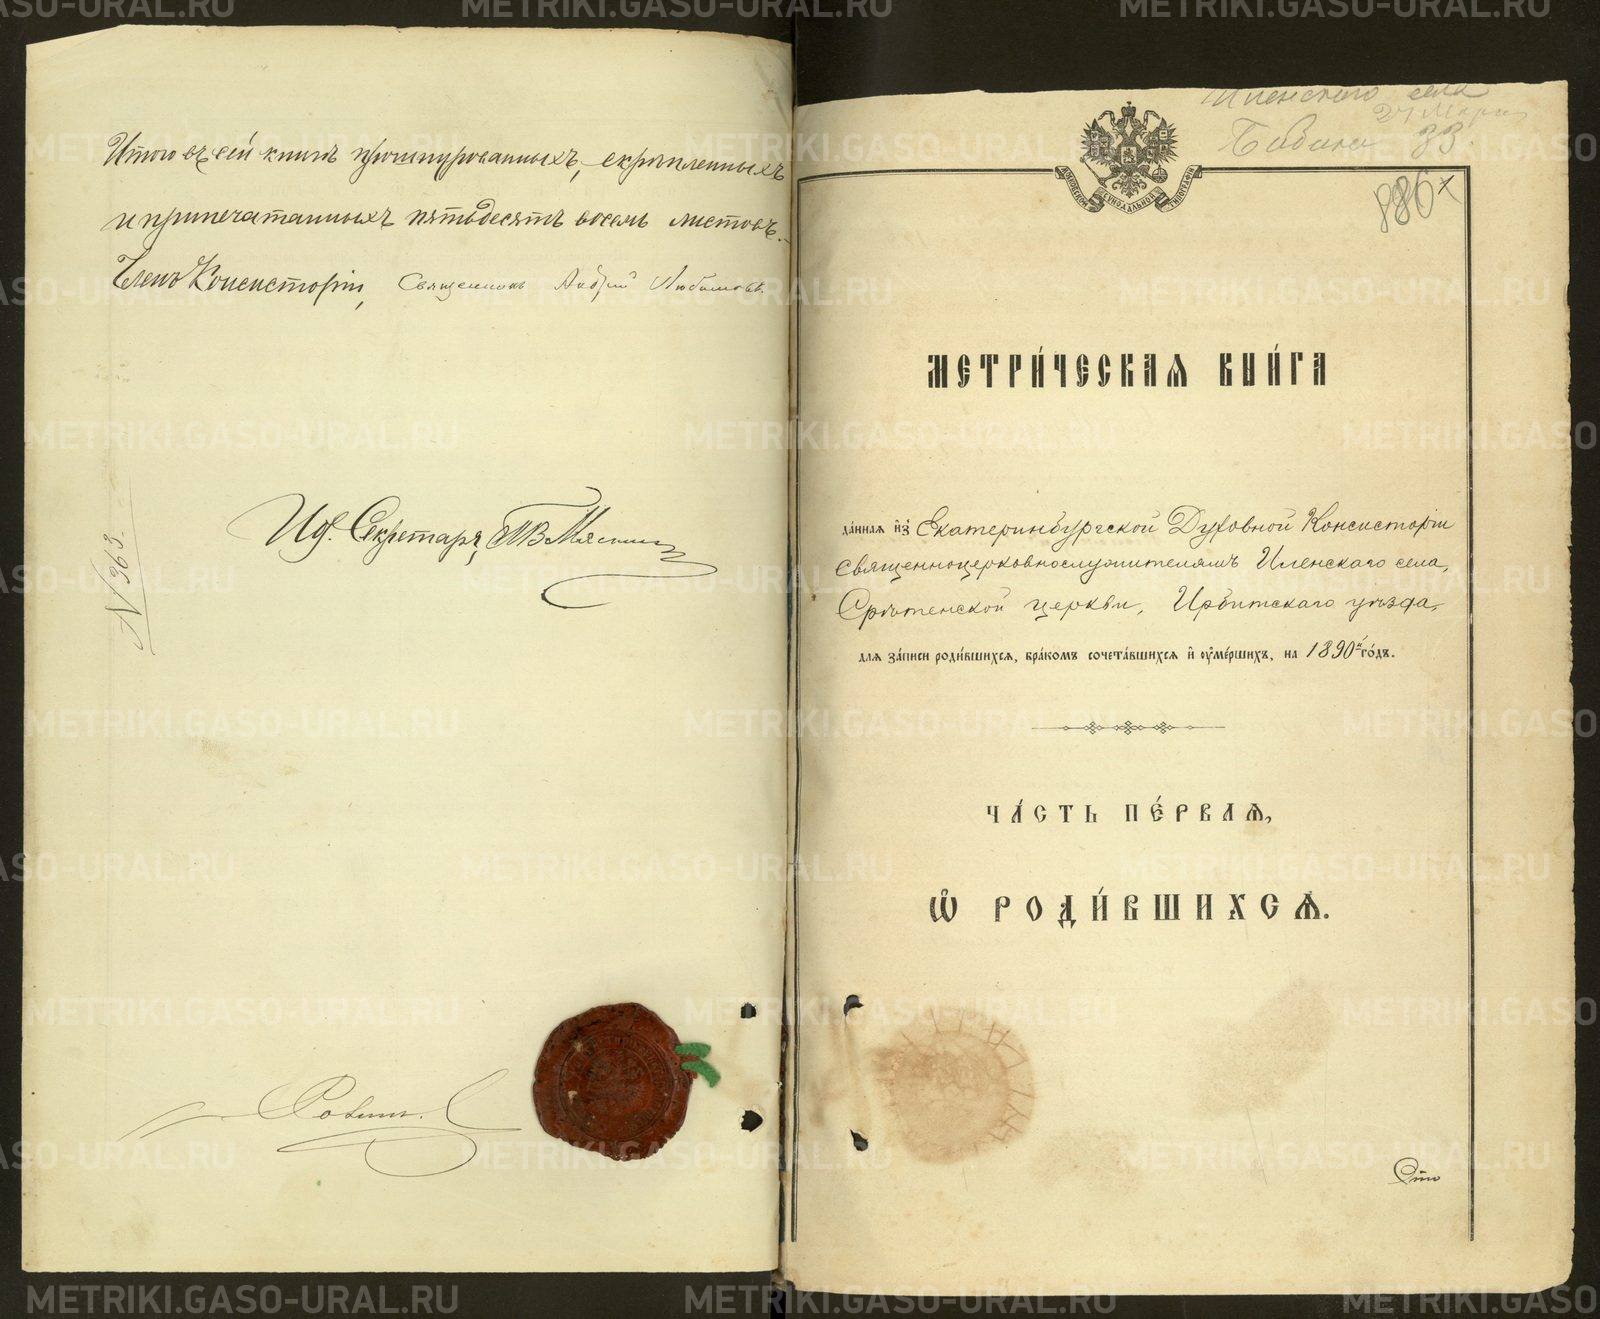 Итого въ сей книгѣ прошнурованныхъ, скрѣпленныхъ
и припечатанныхъ пятьдесятъ восемь листовъ.
Членъ Консисторіи, Священникъ Андрей Любимовъ.
И. д. Секретаря,
N 363.
Илѣнского села
33.
886
МОСКОВСКОЙ СѴНОДАЛЬНОЙ ТИПОГРАФІИ
МЕТРИ́ЧЕСКАѦ КНИ́ГА
да́ннаѧ и҆з̾ Екатеринбургской Духовной Консисторіи
священноцерковнослужителямъ Иленскаго села,
Срѣтенской церкви, Ирбитскаго уѣзда,
длѧ за́писи роди́вшихсѧ, бра́комъ сочета́вшихсѧ и҆ ᲂу҆ме́ршихъ, на 1890й го́дъ.
ЧА́СТЬ ПЕ́РВАѦ,
Ѽ РОДИ́ВШИХСѦ.
METRIKI.GASO-URAL.RU